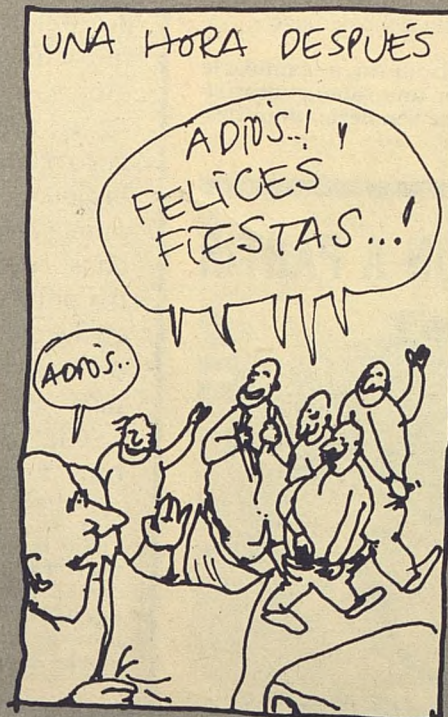 UNA HORA DESPUÉS
ADIOS..! y
FELICES
FIESTAS...!
ADIOS..